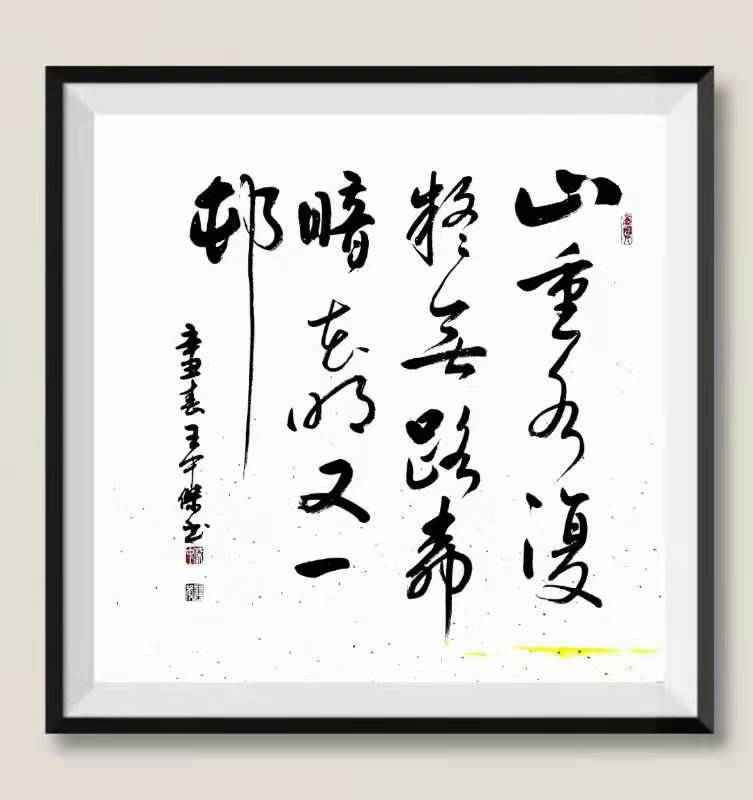 山重水復
疑無路柳
暗花明又一
邨
辛丑春王傑书